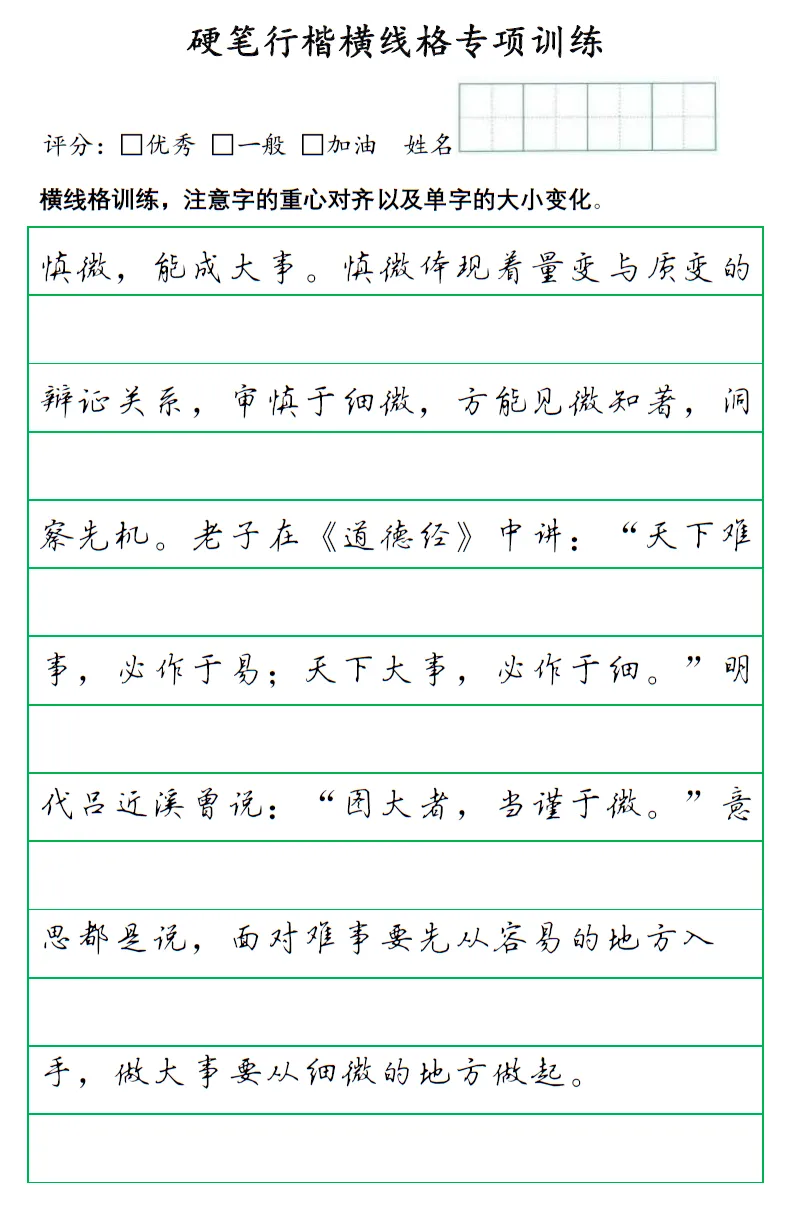 硬笔行楷横线格专项训练
评分：□优秀 □一般 □加油 姓名
横线格训练，注意字的重心对齐以及单字的大小变化。
慎微，能成大事。慎微体现着量变与质变的
辩证关系，审慎于细微，方能见微知著，洞
察先机。老子在《道德经》中讲：“天下难
事，必作于易；天下大事，必作于细。”明
代吕近溪曾说：“图大者，当谨于微。”意
思都是说，面对难事要先从容易的地方入
手，做大事要从细微的地方做起。